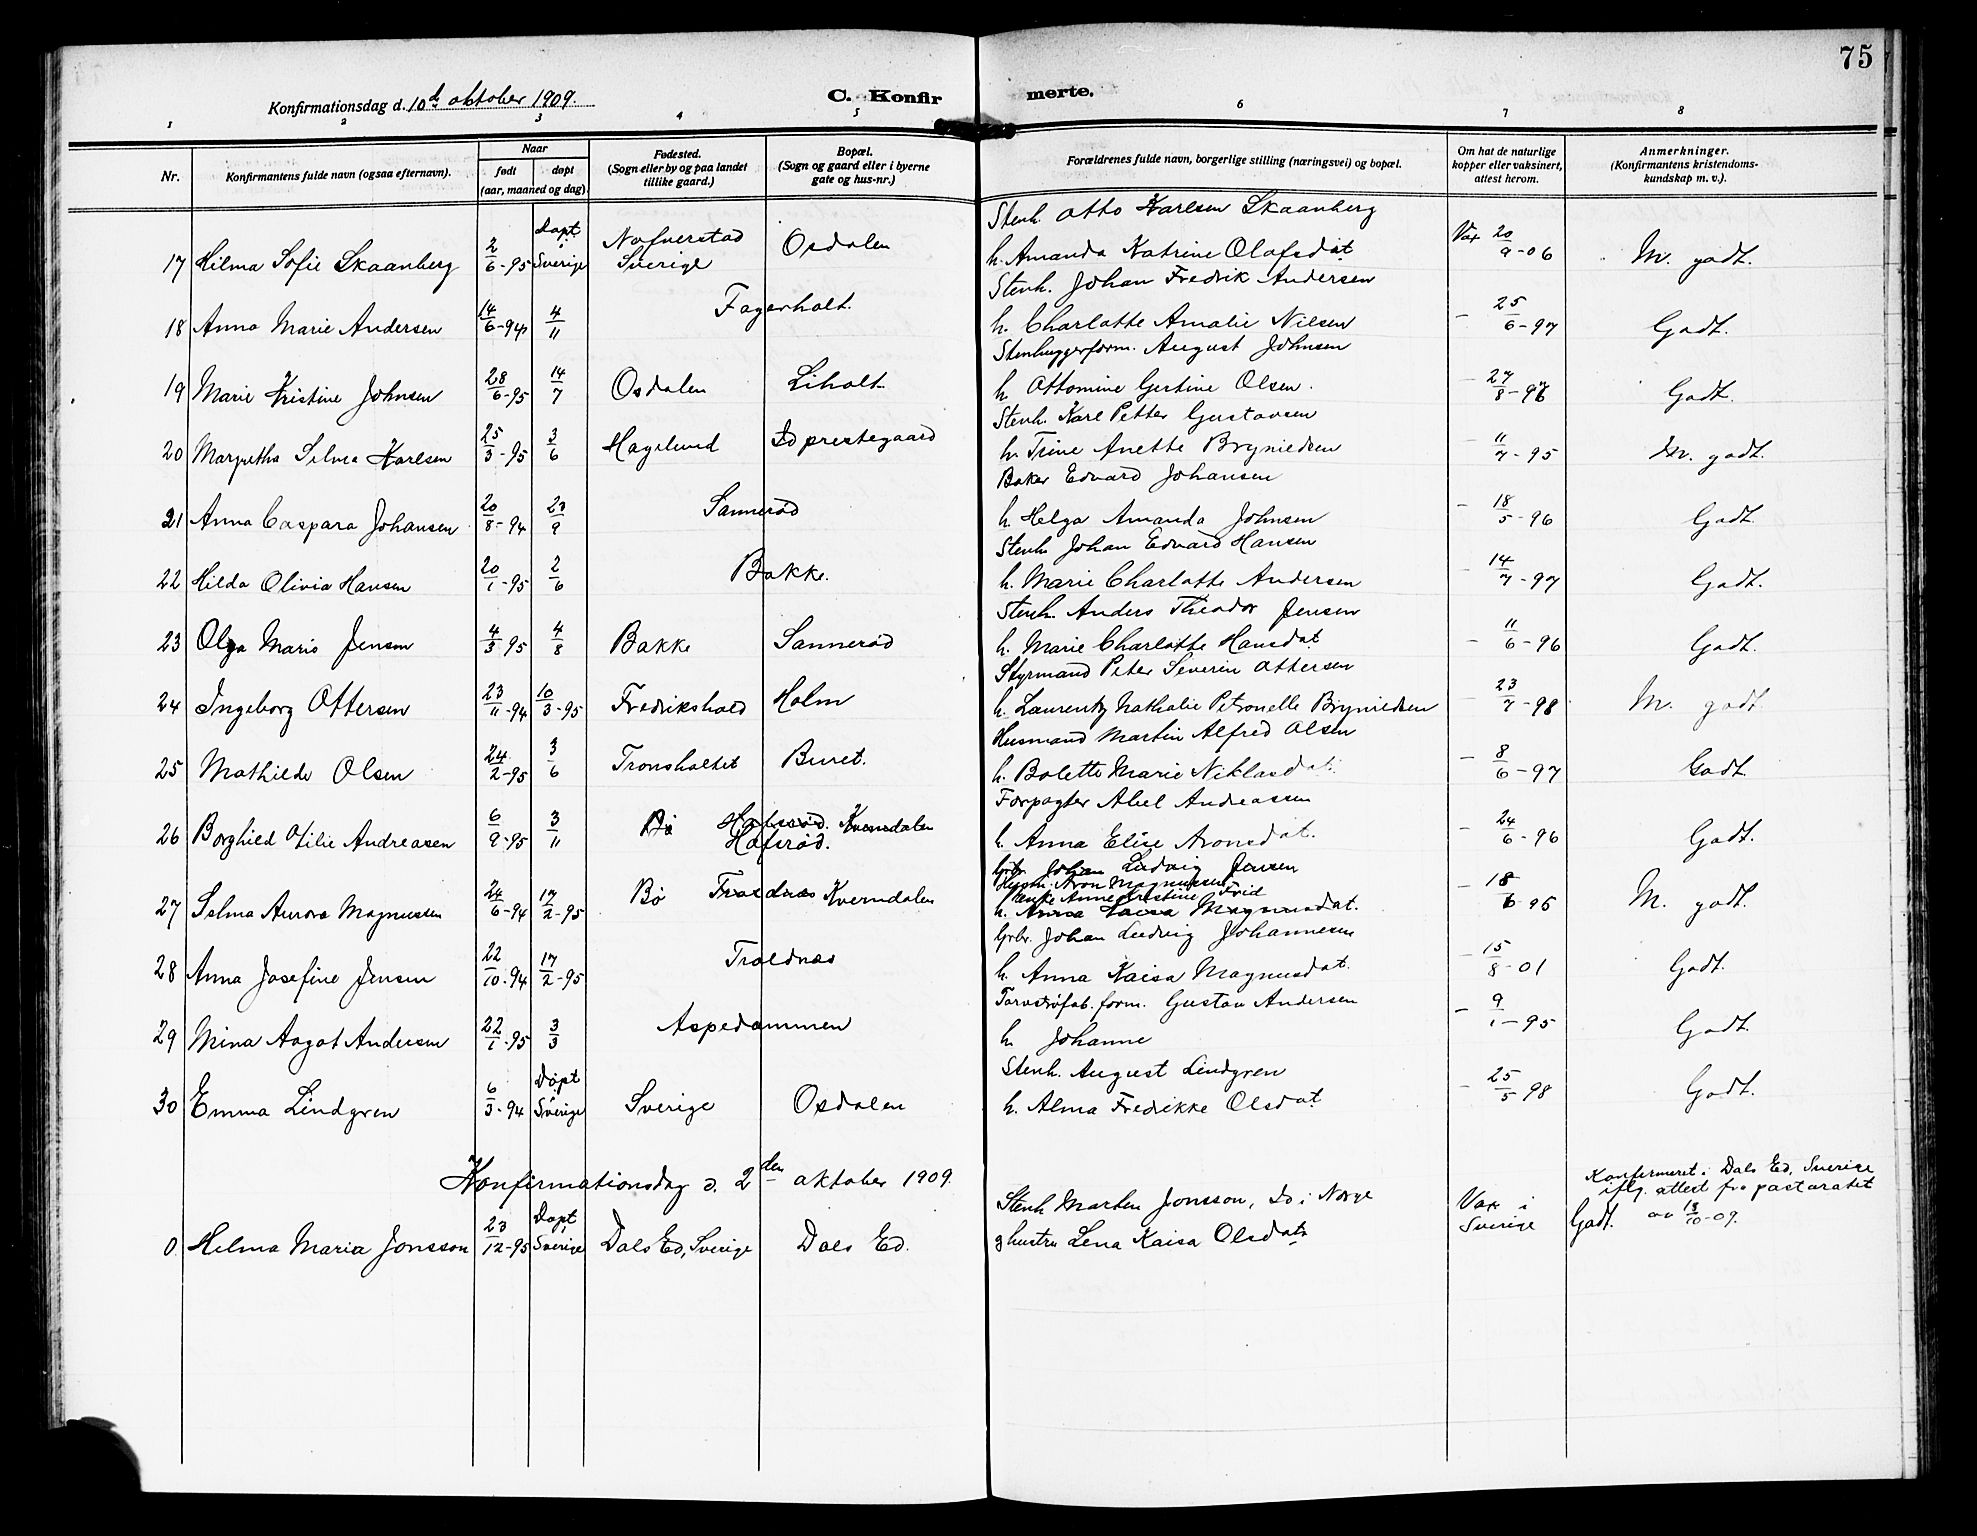 75
Konfirmationsdag d. 10de oktober 1909.
C. Konfirmerte.
1 2 3 4 5 6 7 8
Nr.
Konfirmantens fulde navn (ogsaa efternavn).
Naar
født
døpt
(aar, maaned og dag).
Fødested.
(Sogn eller by og paa landet
tillike gaard.)
Bopæl.
(Sogn og gaard eller i byerne
gate og hus-nr.)
Forældrenes fulde navn, borgerlige stilling (næringsvei) og bopæl.
Om hat de naturlige
kopper eller vaksinert,
attest herom.
Anmerkninger.
(Konfirmantens kristendoms-
kundskap m. v.).
Stenh. Otto Karlsen Skaanberg
17 Hilma Sofie Skaanberg 2/6-95 Døpt i Sverige Nafverstad Sverige Osdalen h. Amanda Katrine Olafsdat. Vax 20/9-06 M. godt.
Stenh. Johan Fredrik Andersen
18 Anna Marie Andersen 14/6-94 4/11 Fagerholt. h. Charlotte Amalie Nilsen - 25/6-97 Godt.
Stenhuggerform. August Johnsen
19 Marie Kristine Johnsen 28/6-95 14/7 Osdalen Liholt. h. Ottomine Gustine Olsen. - 27/8-96 Godt.
Stenh. Karl Petter Gustavsen
20 Margretha Selma Karlsen 25/3-95 3/6 Hagelund Id prestegaard h. Trine Anette Brynildsen - 11/7-95 M. godt.
Baker Edvard Johansen
21 Anna Caspara Johansen 20/8-94 23/9 Sannerød h. Helga Amanda Johnsen - 18/5-96 Godt.
Stenh. Johan Edvard Hansen
22 Hilda Olivia Hansen 20/1-95 2/6 Bakke. h. Marie Charlotte Andersen - 14/7-97 Godt.
Stenh. Anders Theodor Jensen
23 Olga Marie Jensen 4/3-95 4/8 Bakke Sannerød h. Marie Charlotte Hansdat. - 11/6-96 Godt.
Styrmand Peter Severin Ottersen
24 Ingeborg Ottersen 23/11-94 10/3-95 Fredrikshald Holm h. Laurentz Nathalie Petronelle Brynildsen - 23/7-98 M. godt
Husmand Martin Alfred Olsen
25 Mathilde Olsen 24/2-95 3/6 Tronsholtet Buret. h. Bolette Marie Niklasdat. - 8/6-97 Godt.
Forpagter Abel Andreassen
26 Borghild Otilie Andreasen 6/9-95 3/11 Bø Hafsrød. Kverndalen
Hafsrød. h. Anna Elise Aronsdat. - 24/6-96 Godt.
Grbr. Johan Ludvig Jensen
Husm. Aron Magnussen
27 Selma Aurora Magnussen 24/6-94 17/2-95 Bø Troldnæs Kverndalen Anne Kristine Frid
h. Anna Kaisa Magnusdat. - 18/6-95 M. godt.
Grbr. Johan Ludvig Johannesen
28 Anna Josefine Jensen 22/10-94 17/2-95 Troldnæs h. Anna Kaisa Magnusdat. - 15/8-01 Godt.
Torvstrøfab.form. Gustav Andersen
29 Mina Aagot Andersen 22/1-95 3/3 Aspedammen h. Johanne - 9/1-95 Godt
Stenh. August Lindgren
30 Emma Lindgren 6/3-94 Døpt i Sverige Sverige Osdalen h. Alma Fredrikke Olsdat. - 25/5-98 Godt.
Konfirmationsdag d. 2den oktober 1909.
Konfirmeret i Dals Ed, Sverige
iflg. attest fra pastoratet
av 13/10-09.
Stenh. Marten Jonsson, Id i Norge
0 Helma Maria Jonsson 23/12-95 Døpt i Sverige Dals Ed, Sverige Dals Ed. g hustru Lena Kaisa Olsdat. Vax i Sverige Godt.